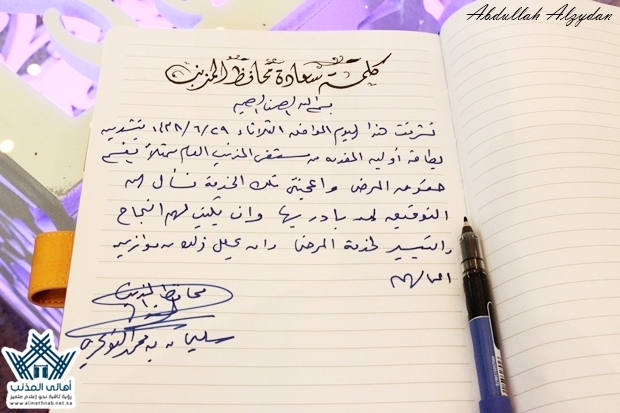 Abdullah Alzydan
كلمة سعادة محافظ المذنب
بسم الله الرحمن الرحيم
تشرفت هذا اليوم الموافق الثلاثاء ١٤٣٨/٦/٢٩ بتدشين
بطاقة أولية المقدمة من مستشفى المذنب العام ممثلاً بقسم
حقوق المرضى واعجبتني تلك الخدمة نسأل الله
التوفيق لمن بادر بها وان يكتب لهم النجاح
والتيسير لخدمة المرضى وان يجعل ذلك من موازين
اعمالهم
محافظ المذنب
سليمان بن محمد النويحري
أهالي المذنب
رؤية ثاقبة نحو إعلام متميز
www.almethnab.net.sa